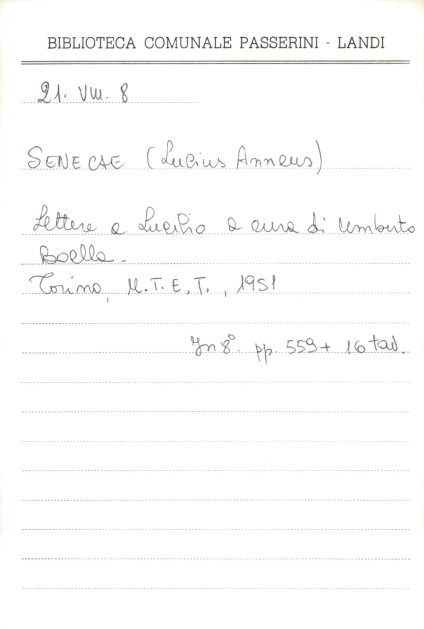 BIBLIOTECA COMUNALE PASSERINI - LANDI
21. VIII. 8
SENECAE (Lucius Anneus)
Lettere a Lucilio a cura di Umberto
Boella.
Torino, U.T.E.T., 1951
In 8°. pp. 559 + 16 tav.